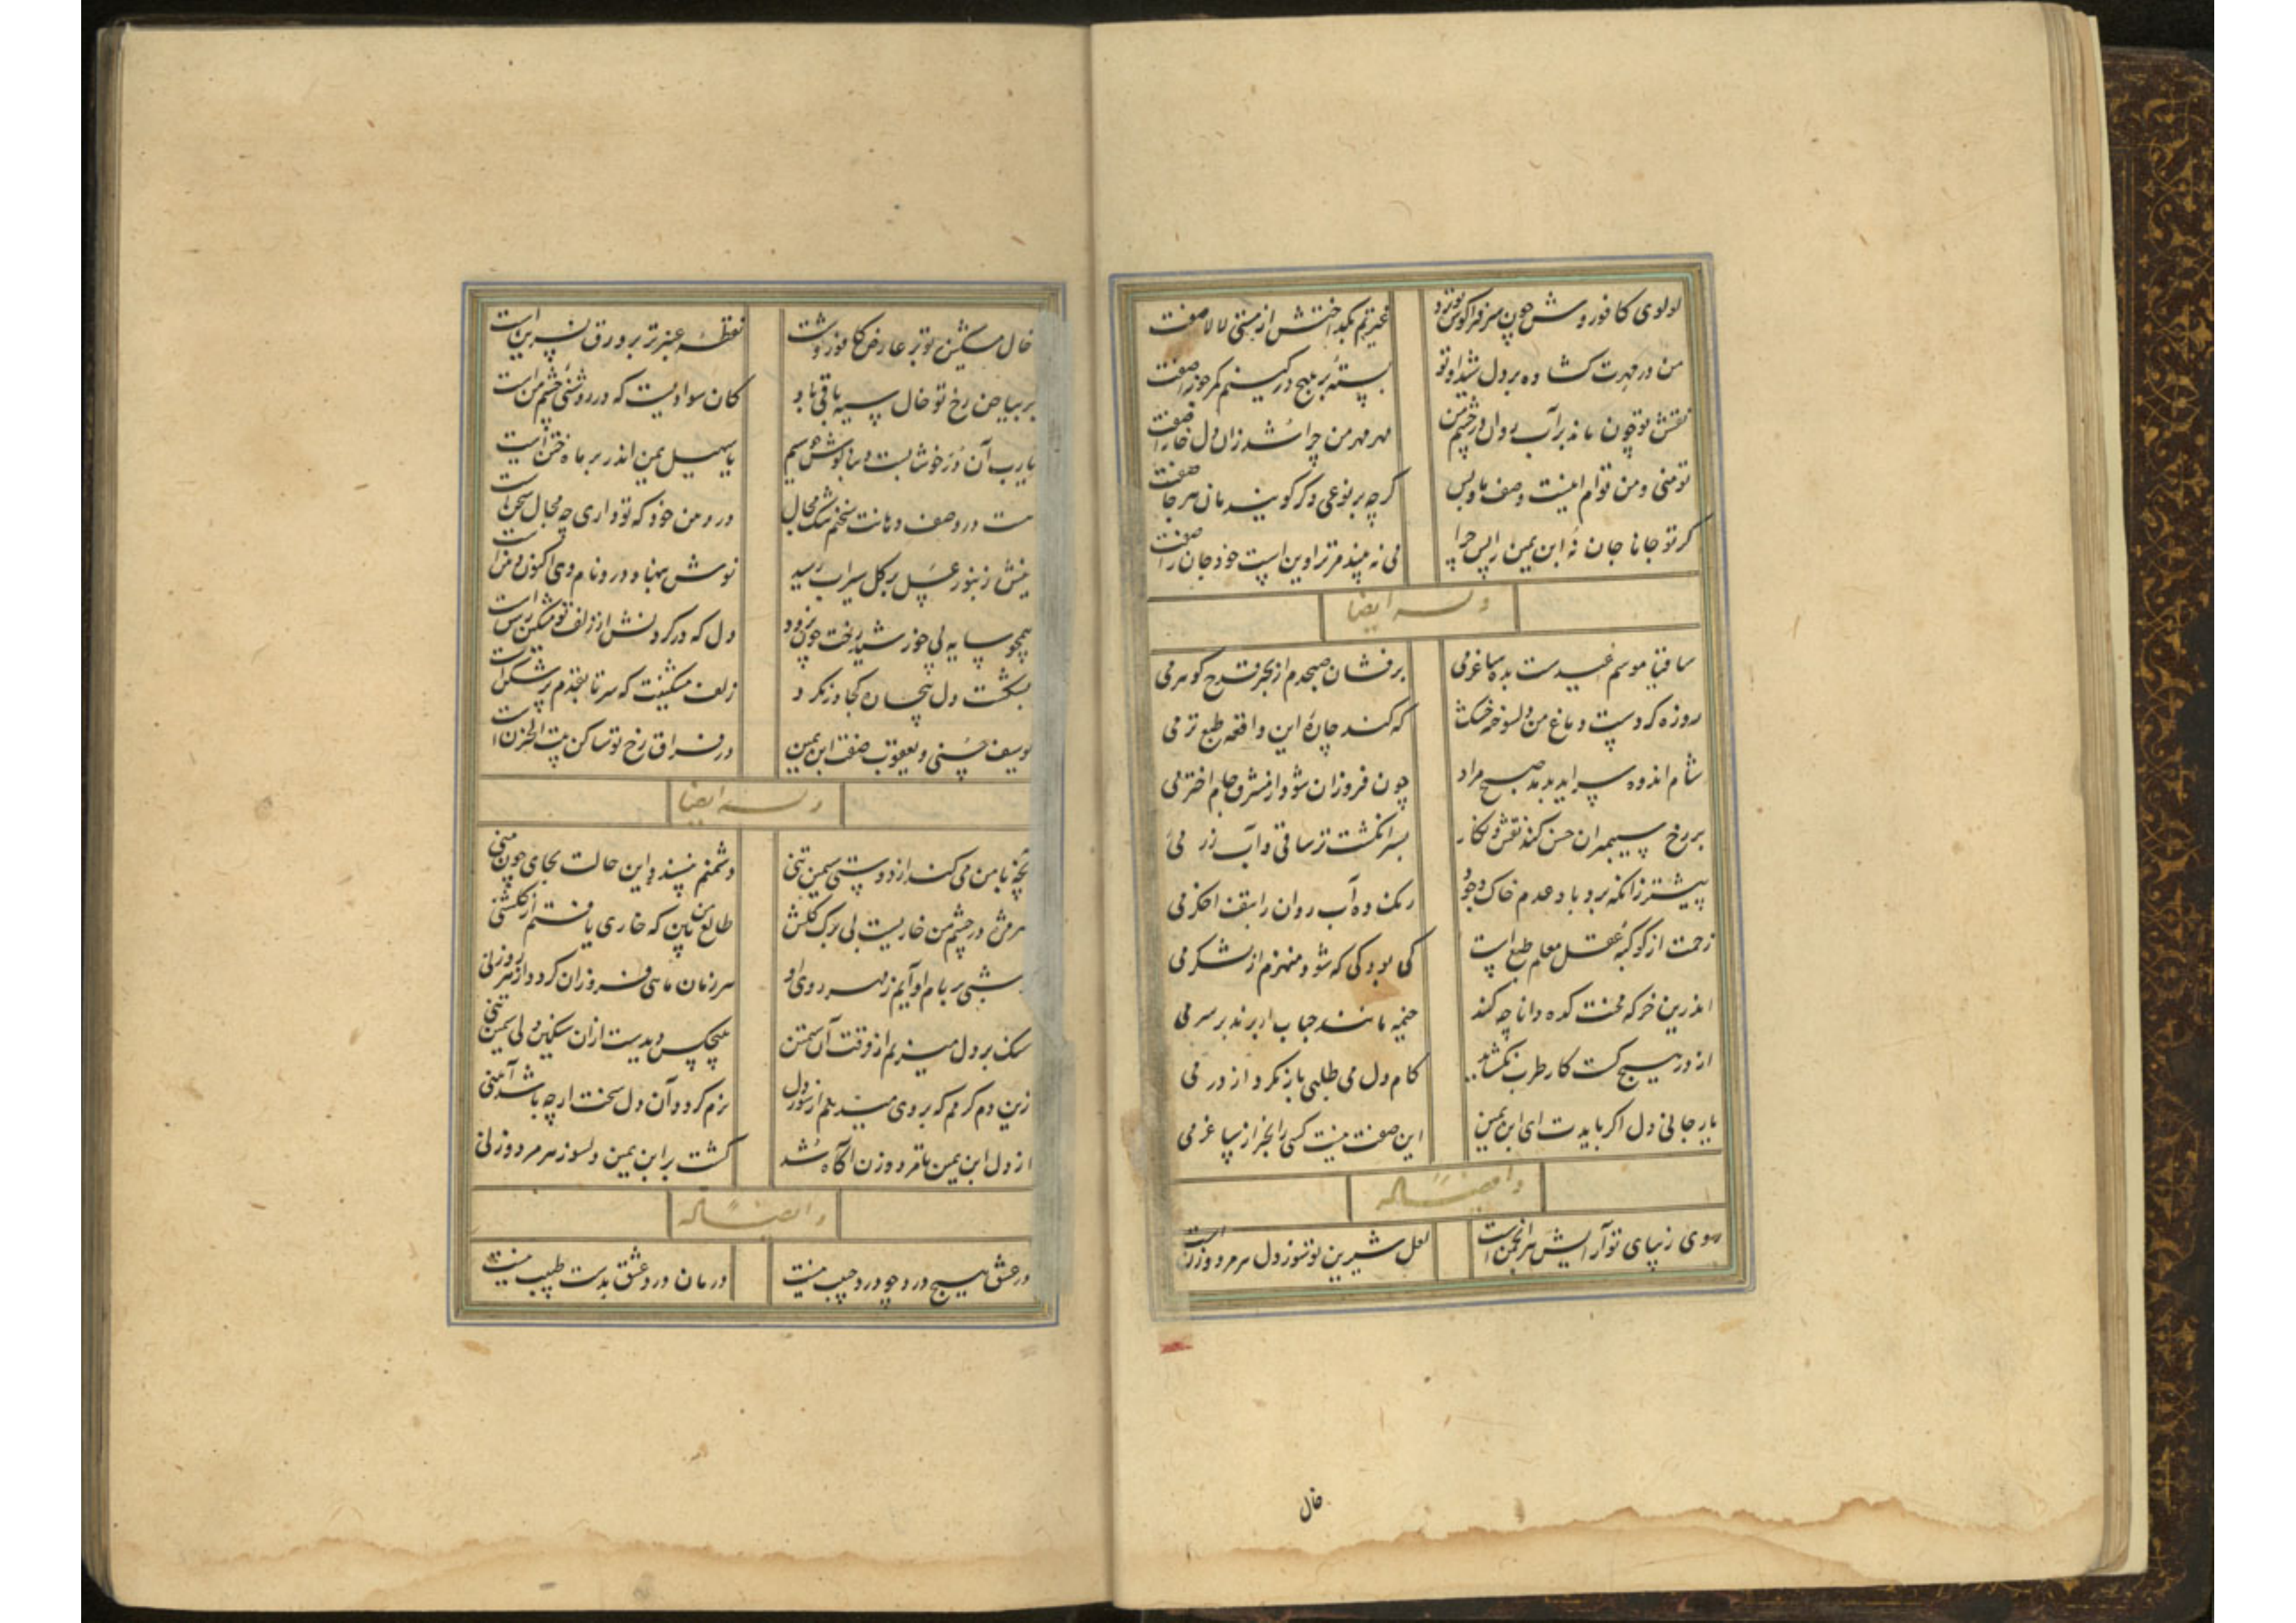 لولوی کافوروش چون سر فرا گوش تو برد
عنبرینم بگداختش از مستی لالا صفت
من در مهرت گشاده بر دل شیدا و تو
بسته بر هیچ در کینم کمر جوزا صفت
نقش تو چون ماند بر آب روان در چشم من
مهر من چرا شد زان دل خارا صفت
تو منی و من توام اینست وصف ما و بس
گرچه بر نوعی دگر گویندمان هر جا صفت
گر تو جانا جان نهٔ ابن یمین را پس چرا
می نه بیند مر ترا وین است خود جان را صفت
وله ایضا
ساقیا موسم عیدست بده ساغر می
برفشان صبحدم از بحر قدح گوهر می
روزه کردست دماغ من دلسوخته خشک
که کند چارهٔ این واقعه طبع تر می
شام اندوه سراید بدمد صبح مراد
چون فروزان شود از مشرق جام اختر می
بر رخ سیمبران حسن کند نقش و نگار
بسر انگشت تر ساقی و آب زر می
پیشتر زانکه برد باد عدم خاک وجود
رنگ ده آب روان را بتف اخگر می
زحمت از کوکبهٔ عقل معلم طبع است
کی بود کی که شود منهزم از لشکر می
اندرین خرگه محنت کده دانا چه کند
خیمه مانند حباب ار نزند بر سر می
از در هیچ کست کار طرب نگشاید
کام دل می طلبی باز مگرد از در می
یار جانی دل اگر بایدت ای ابن یمین
این صفت نیست کسی را بجز از ساغر می
و ایضا له
روی زیبای تو آرایش هر انجمن است
لعل شیرین تو شور دل هر مرد و زن است
خال
خال مشکین تو بر عارض کافوروشت
نقطهٔ عنبر تر بر ورق نسرین است
بر بیاض رخ تو خال سیه باقی باد
کان سوادیست که در روشنی چشم من است
یارب آن در خوشابست و بناگوش چو سیم
یا سهیل یمن اندر بر ماه ختن است
هست در وصف دهانت سخنم تنگ مجال
در دهن خود که تو داری چه مجال سخن است
نیش زنبور عسل بر گل سیراب رسید
نوش بنهاد درو نام وی اکنون دهن است
همچو سایه پی خورشید رخت چون نرود
دل که در گردنش از زلف تو مشکین رسن است
بشکست دل پنهان کجا در نگرد
زلف مشکینت که سر تا بقدم پر شکن است
یوسف حسنی و یعقوب صفت ابن یمین
در فراق رخ تو ساکن بیت الحزن است
وله ایضا
آنچه با من می کند از دوستی سیمین تنی
دشمنم نپسندد این حالت بجای چون منی
هر مژه در چشم من خاریست بی برگ گلش
طالع من بین که خاری یافتم از گلشنی
هر شبی بر بام او آیم ز مهر روی او
هر زمان ماهی فروزان گردد از هر روزنی
سنگ بر دل میزنم از فرقت آن سیمتن
هیچکس دیدست ازان سنگین دلی سیمین تنی
زین دم گرمم که بر وی میدمم از سوز دل
نرم گردد آن دل سخت ار چه باشد آهنی
از دل ابن یمین تا مرد و زن آگاه شد
گشت بر ابن یمین دلسوز هر مرد و زنی
و ایضا له
در عشق هیچ درد چو درد حبیب نیست
درمان درد عشق بدست طبیب نیست